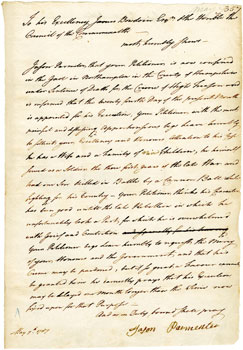 To his Excellency James Bowdoin Esqr. & the Honble the
Council of the Commonwealth
most humbly Shews
Jason Parmenter, that your Petitioner is now confined
in the Goal in Northampton in the County of Hampshire
under Sentence of Death for the Crime of High Treason and
is informed that the twenty fourth day of the present Month
is appointed for his Execution. Your Petitioner with the most
painful and Apprehensions begs leave humbly
to your Excellency and Honours
he has a Wife and a Family of Children, he himself
served as a Soldier the three first years of the late War and
had one Son killed in Battle by a Cannon Ball while
fighting for his Country. Your Petitioner
has been
unfortunately took a Part, for which he is overwhelmed
with grief and Contrition
Your Petitioner begs leave humbly to the Mercy
of your Honours and the Government, and that his
Crime may be pardoned, but if so great a Favour cannot
be granted from he earnestly prays that his Execution
may be delayed one Month longer than the time now
fixed upon for that Purpose
And in Duty bound shall pray
May 1787
Jason Parmenter